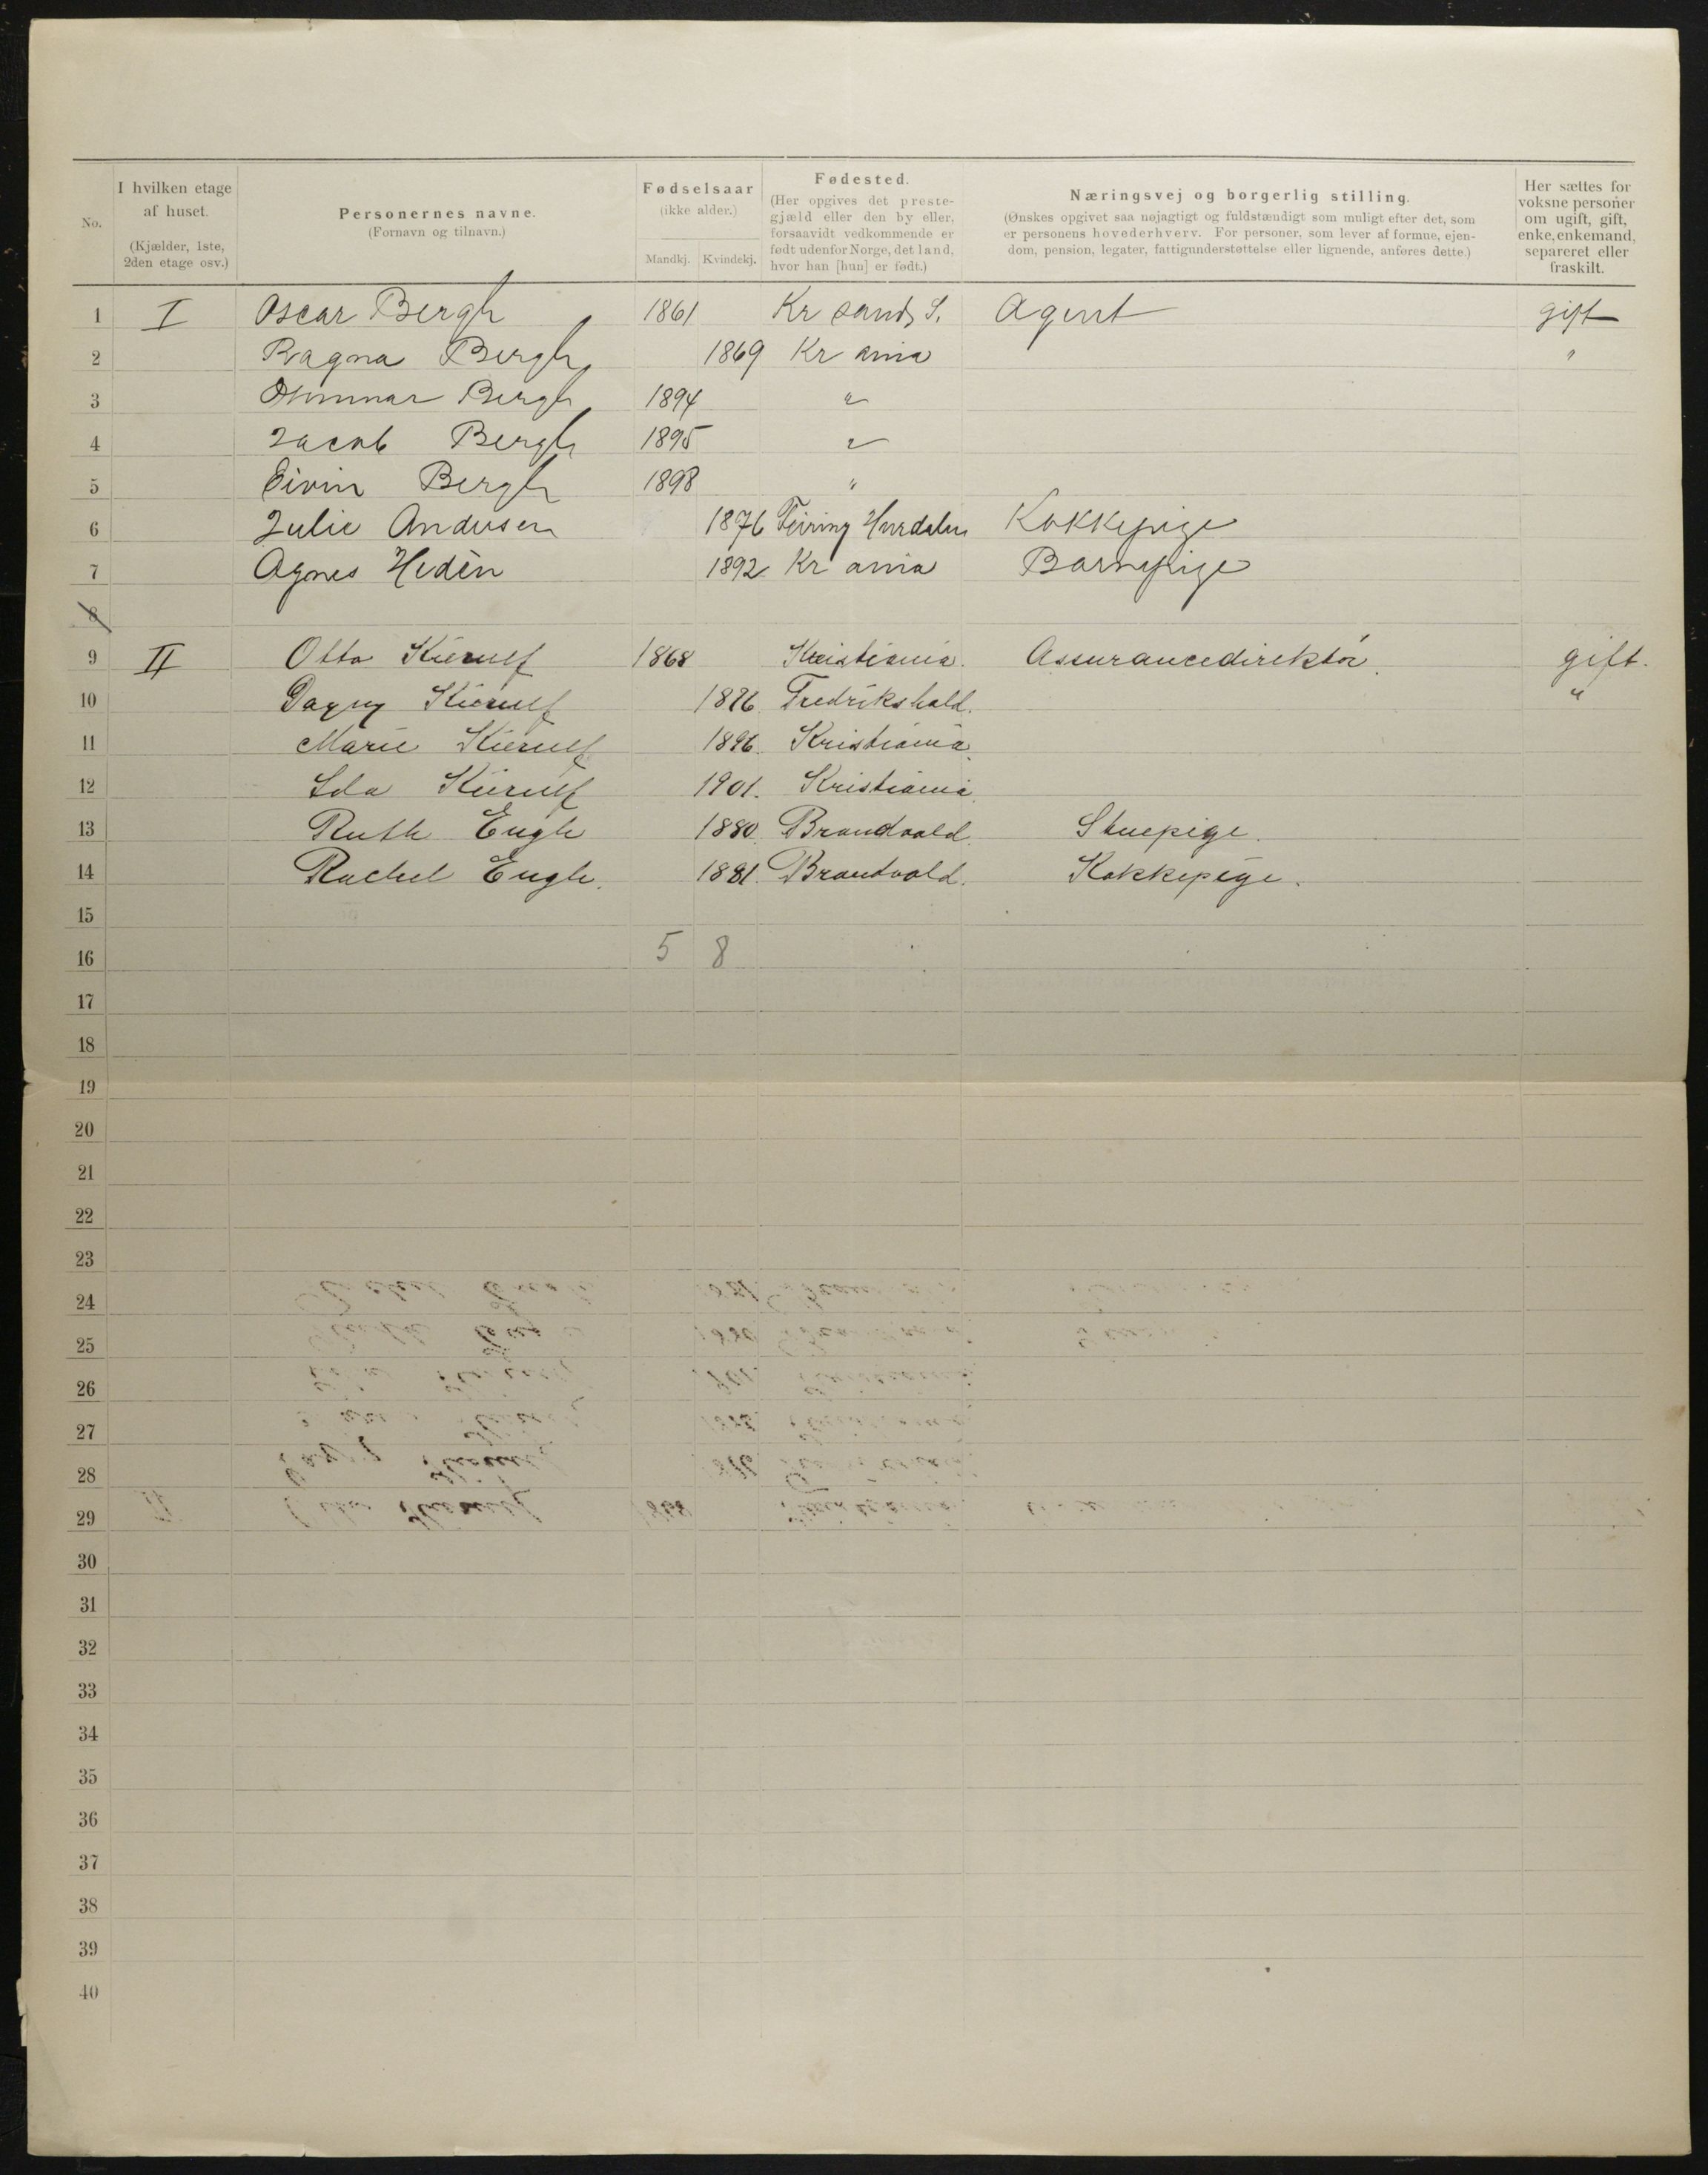 No.
I hvilken etage
af huset.
(Kjælder, 1ste,
2den etage osv.)
Personernes navne.
(Fornavn og tilnavn.)
Fødselsaar
(ikke alder.)
Mandkj. Kvindekj.
Fødested.
(Her opgives det preste-
gjæld eller den by eller,
forsaavidt vedkommende er
født udenfor Norge, det land,
hvor han [hun] er født.)
Næringsvej og borgerlig stilling.
(Ønskes opgivet saa nøjagtigt og fuldstændigt som muligt efter det, som
er personens hovederhverv. For personer, som lever af formue, ejen-
dom, pension, legater, fattigunderstøttelse eller lignende, anføres dette.)
Her sættes for
voksne personer
om ugift, gift,
enke, enkemand,
separeret eller
fraskilt.
1 I Oscar Bergh 1861 Kr sands S. Agent gift
2 Ragna Bergh 1869 Kr ania "
3 Bergh 1894 "
4 Jacob Bergh 1895 "
5 Eivin Bergh 1898 "
6 Julie Andersen 1876 Feiring Hurdalen Kokkepige
7 Agnes Hedèn 1892 Kr ania Barnepige
8
9 II Otto Kierulf 1868 Kristiania. Assurancedirektör. gift.
10 Dagny Kierulf 1876. Fredrikshald. "
11 Marie Kierulf 1896. Kristiania.
12 Ida Kierulf 1901. Kristiania.
13 Ruth Engh 1880. Brandvold. Stuepige.
14 Rachel Engh. 1881. Brandvold. Kokkepige.
15
16 5 8
17
18
19
20
21
22
23
24
25
26
27
28
29
30
31
32
33
34
35
36
37
38
39
40